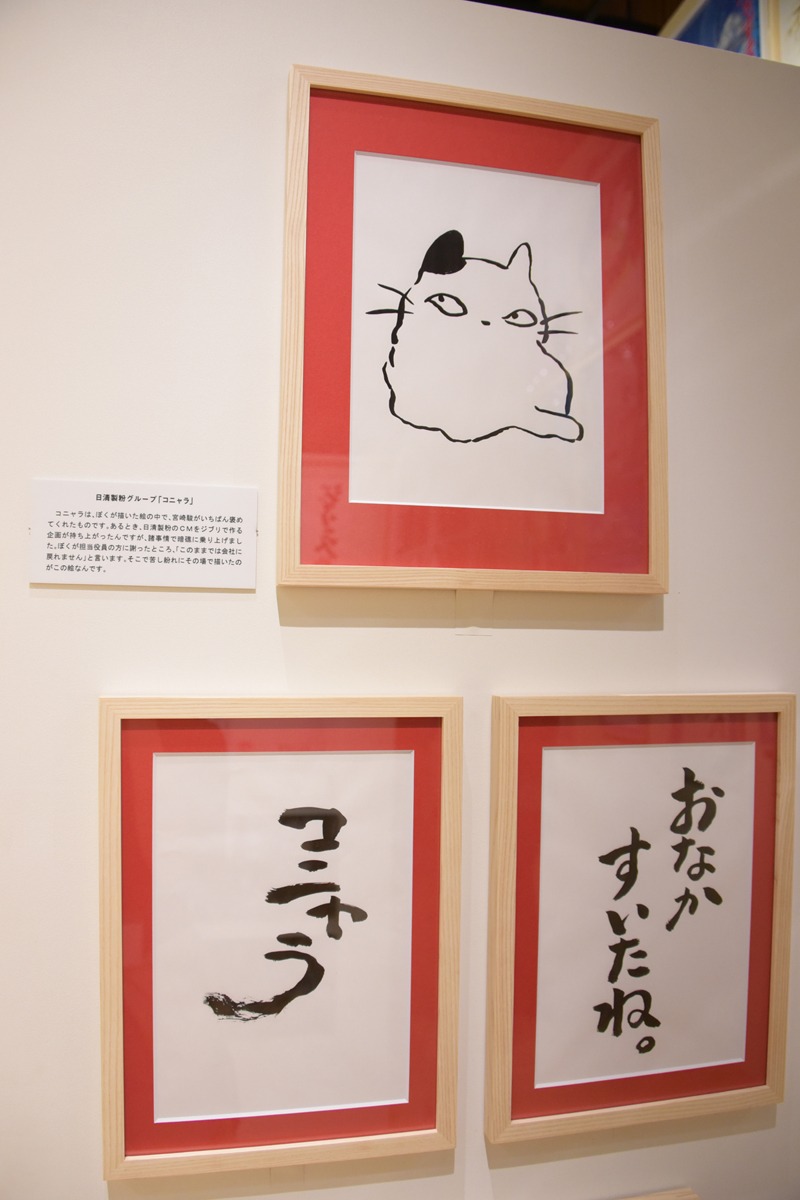 日清製粉グループ「コニャラ」
コニャラは、ぼくが描いた絵の中で、宮崎駿がいちばん褒め
てくれたものです。あるとき、日清製粉のCMをジブリで作る
企画が持ち上がったんですが、諸事情で暗礁に乗り上げまし
た。ぼくが担当役員の方に謝ったところ、「このままでは会社に
戻れません」と言います。そこで苦し紛れにその場で描いたの
がこの絵なんです。
コニャラ
おなか
すいたね。